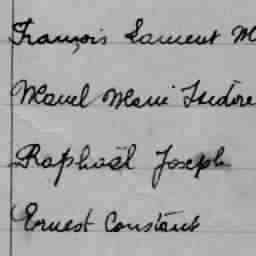 François Laurent M
Marcel Marie Isidore
Raphaël Joseph
Ernest Constant